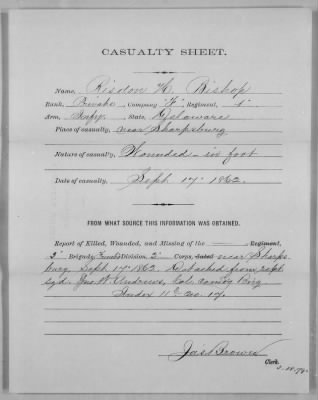 CASUALTY SHEET.
Name, Risdon H. Bishop
Rank, Private Company "F" Regiment, 1"
Arm, Infty. State, Delaware
Place of casualty, near Sharpsburg
Nature of casualty, Wounded - in foot
Date of casualty, Sept. 17" 1862.
FROM WHAT SOURCE THIS INFORMATION WAS OBTAINED.
Report of Killed, Wounded, and Missing of the Regiment,
3" Brigade, French's Division, 2" Corps, dated near Sharps
burg Sept. 17" 1862. Detached from rept.
sgd. Jno. W. Andrews, Col. comdg Brig
Index 11 No. 17.
Jas Brown
Clerk.